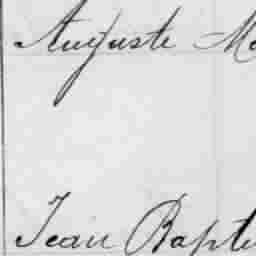 Auguste Ma
Jean Bapti